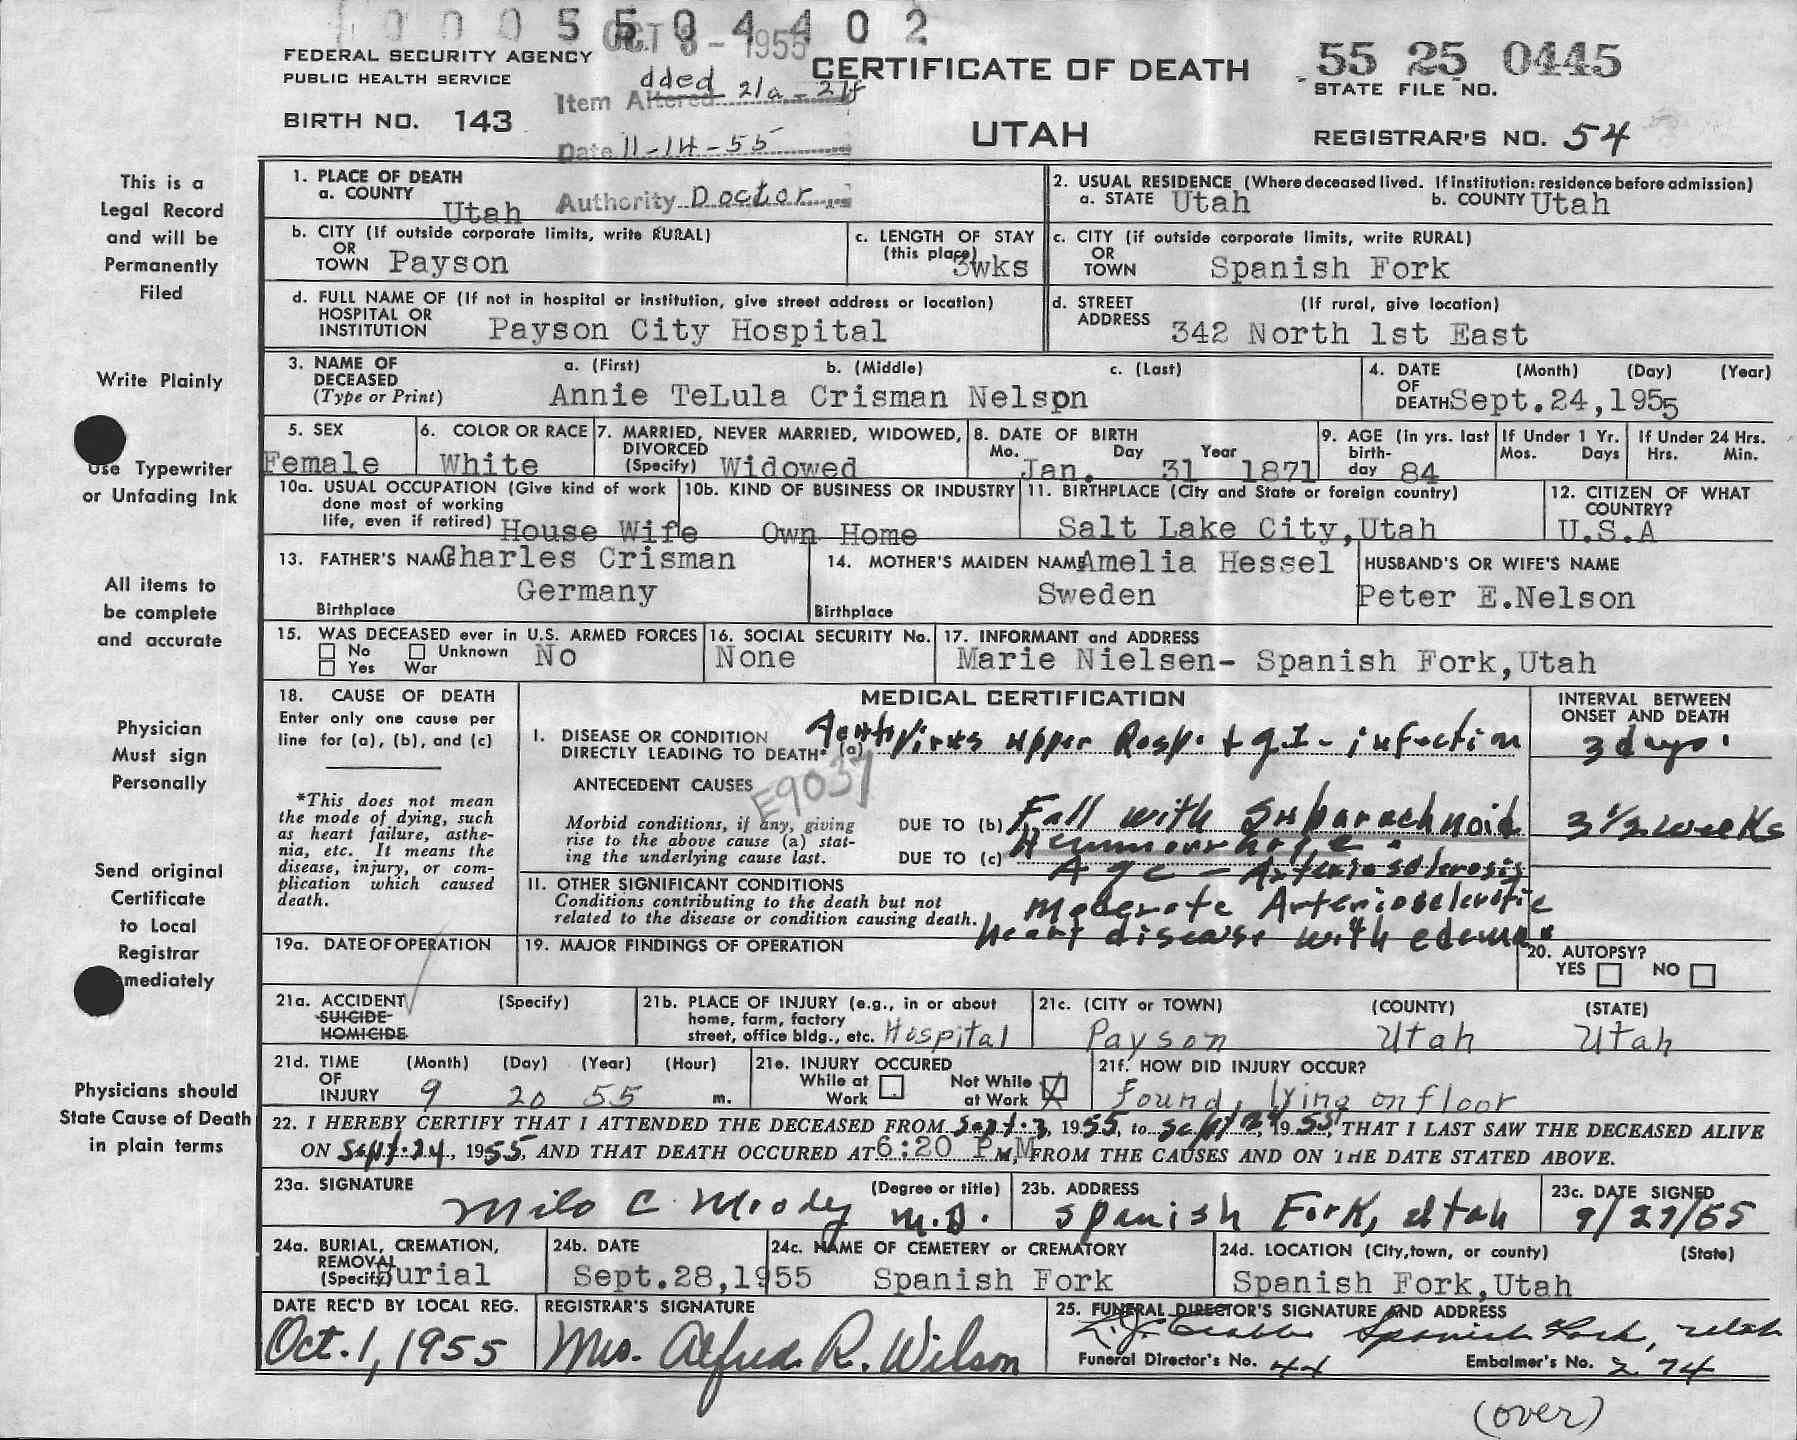 0 0 0 5 5 0 4 4 0 2
OCT 8 - 1955
FEDERAL SECURITY AGENCY
PUBLIC HEALTH SERVICE
BIRTH NO. 143
dded
Item Altered 21a - 21f
Date 11-14-55
Authority Doctor
CERTIFICATE OF DEATH
UTAH
55 25 0445
STATE FILE NO.
REGISTRAR'S NO. 54
This is a
Legal Record
and will be
Permanently
Filed
Write Plainly
Use Typewriter
or Unfading Ink
All items to
be complete
and accurate
Physician
Must sign
Personally
Send original
Certificate
to Local
Registrar
mmediately
Physicians should
State Cause of Death
in plain terms
1. PLACE OF DEATH
a. COUNTY Utah
2. USUAL RESIDENCE (Where deceased lived. If institution: residence before admission)
a. STATE Utah b. COUNTY Utah
b. CITY (If outside corporate limits, write RURAL)
OR
TOWN Payson
c. LENGTH OF STAY
(this place) 3wks
c. CITY (if outside corporate limits, write RURAL)
OR
TOWN Spanish Fork
d. FULL NAME OF (If not in hospital or institution, give street address or location)
HOSPITAL OR
INSTITUTION Payson City Hospital
d. STREET (If rural, give location)
ADDRESS 342 North 1st East
3. NAME OF a. (First) b. (Middle) c. (Last)
DECEASED
(Type or Print) Annie TeLula Crisman Nelson
4. DATE (Month) (Day) (Year)
OF
DEATH Sept.24,1955
5. SEX
Female
6. COLOR OR RACE
White
7. MARRIED, NEVER MARRIED, WIDOWED,
DIVORCED
(Specify) Widowed
8. DATE OF BIRTH
Mo. Day Year
Jan. 31 1871
9. AGE (in yrs. last
birth-
day 84
If Under 1 Yr.
Mos. Days
If Under 24 Hrs.
Hrs. Min.
10a. USUAL OCCUPATION (Give kind of work
done most of working
life, even if retired) House Wife
10b. KIND OF BUSINESS OR INDUSTRY
Own Home
11. BIRTHPLACE (City and State or foreign country)
Salt Lake City,Utah
12. CITIZEN OF WHAT
COUNTRY?
U.S.A
13. FATHER'S NAME Charles Crisman
Germany
Birthplace
14. MOTHER'S MAIDEN NAME Amelia Hessel
Sweden
Birthplace
HUSBAND'S OR WIFE'S NAME
Peter E.Nelson
15. WAS DECEASED ever in U.S. ARMED FORCES
No Unknown No
Yes War
16. SOCIAL SECURITY No.
None
17. INFORMANT and ADDRESS
Marie Nielsen- Spanish Fork,Utah
18. CAUSE OF DEATH
Enter only one cause per
line for (a), (b), and (c)
*This does not mean
the mode of dying, such
as heart failure, asthe-
nia, etc. It means the
disease, injury, or com-
plication which caused
death.
MEDICAL CERTIFICATION
INTERVAL BETWEEN
ONSET AND DEATH
I. DISEASE OR CONDITION
DIRECTLY LEADING TO DEATH* (a) Acute Virus Upper Resp. + G.I- infection 3 days.
ANTECEDENT CAUSES
E9037
Morbid conditions, if any, giving
rise to the above cause (a) stat-
ing the underlying cause last.
DUE TO (b) Fall with Subarachnoid 3 1/2 weeks
Hemmourhage.
DUE TO (c) Age - Arteriosclerosis
II. OTHER SIGNIFICANT CONDITIONS
Conditions contributing to the death but not
related to the disease or condition causing death.
Moderate Arteriosclerotic
Heart disease with edema.
19a. DATE OF OPERATION
19. MAJOR FINDINGS OF OPERATION
20. AUTOPSY?
YES NO
21a. ACCIDENT (Specify)
SUICIDE
HOMICIDE
21b. PLACE OF INJURY (e.g., in or about
home, farm, factory
street, office bldg., etc. Hospital
21c. (CITY or TOWN) (COUNTY) (STATE)
Payson Utah Utah
21d. TIME (Month) (Day) (Year) (Hour)
OF
INJURY 9 20 55 m.
21e. INJURY OCCURED
While at Work Not While at Work
21f. HOW DID INJURY OCCUR?
Found, lying on floor
22. I HEREBY CERTIFY THAT I ATTENDED THE DECEASED FROM Sept. 3, 1955, to Sept 24, 1955, THAT I LAST SAW THE DECEASED ALIVE
ON Sept. 24, 1955, AND THAT DEATH OCCURED AT 6:20 P.M, FROM THE CAUSES AND ON THE DATE STATED ABOVE.
23a. SIGNATURE (Degree or title)
Milo C. Moody M.D.
23b. ADDRESS
Spanish Fork, Utah
23c. DATE SIGNED
9/27/55
24a. BURIAL, CREMATION,
REMOVAL
(Specify) Burial
24b. DATE
Sept.28,1955
24c. NAME OF CEMETERY or CREMATORY
Spanish Fork
24d. LOCATION (City,town, or county) (State)
Spanish Fork,Utah
DATE REC'D BY LOCAL REG.
Oct. 1, 1955
REGISTRAR'S SIGNATURE
Mrs. Alfred R. Wilson
25. FUNERAL DIRECTOR'S SIGNATURE AND ADDRESS
Spanish Fork, Utah
Funeral Director's No. 44 Embalmer's No. 274
(over)